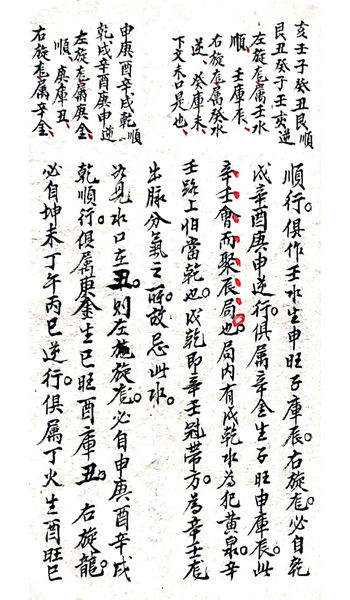 亥壬子癸丑艮順
艮丑癸子壬亥逆
左旋龙屬壬水
順、壬庫辰、
右旋龙屬癸水
逆、癸庫未
下文未口是也、
申庚酉辛戌乾順
乾戌辛酉庚申逆
左旋龙屬庚金
順、庚庫丑、
右旋龙屬辛金、
順行。俱作壬水生申旺子庫辰。右旋龙。必自乾
戌辛酉庚申逆行。俱屬辛金生子旺申庫辰。此
辛壬會而聚辰局也。局内有戌乾水為犯黄泉。辛
壬路上怕當乾也。戌乾即辛壬冠带方。為辛壬龙
出脉分氣之所。故忌此水。
次見水口在丑。則左旋龙。必自申庚酉辛戌
乾順行。俱屬庚金生巳旺酉庫丑。右旋龍。
必自坤未丁午丙巳逆行。俱屬丁火生酉旺巳